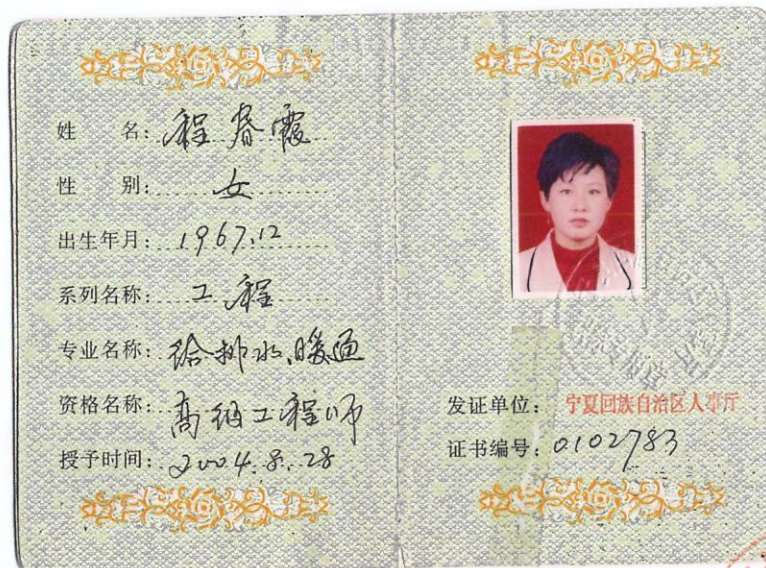 姓 名：程春霞
性 别：女
出生年月：1967.12
系列名称：工程
专业名称：给排水、暖通
资格名称：高级工程师
授予时间：2004.8.28
发证单位：宁夏回族自治区人事厅
证书编号：0102783